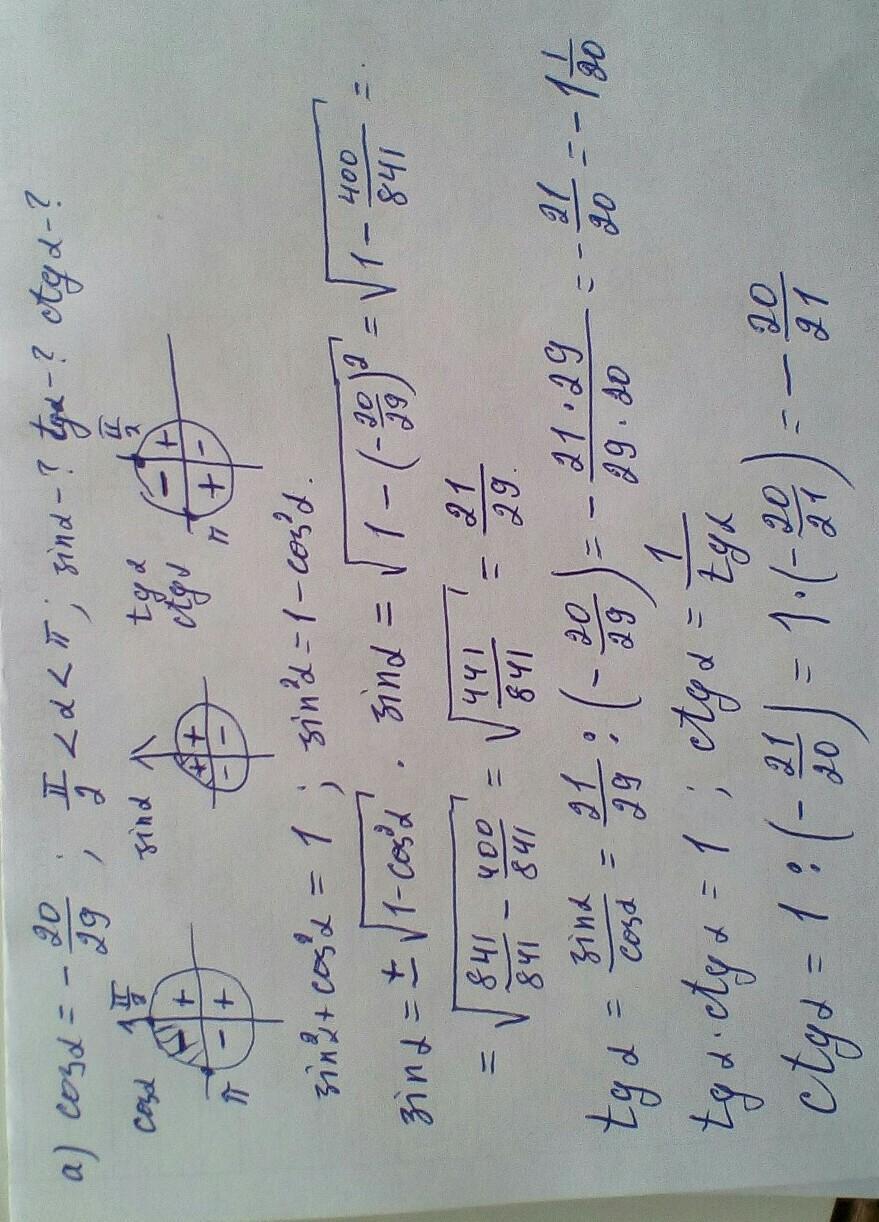 а) cosα = -20/29 ; π/2 < α < π ; sinα-? tgα-? ctgα-?
cosα π/2 + - + π
sinα + + - -
tgα ctgα π/2 - + + - π
sin²α + cos²α = 1 ; sin²α = 1 - cos²α.
sinα = ±√(1-cos²α) . sinα = √(1 - (-20/29)²) = √(1 - 400/841) =
= √(841/841 - 400/841) = √(441/841) = 21/29.
tgα = sinα/cosα = 21/29 : (-20/29) = -(21·29)/(29·20) = -21/20 = -1 1/20
tgα · ctgα = 1 ; ctgα = 1/tgα
ctgα = 1 : (-21/20) = 1·(-20/21) = -20/21